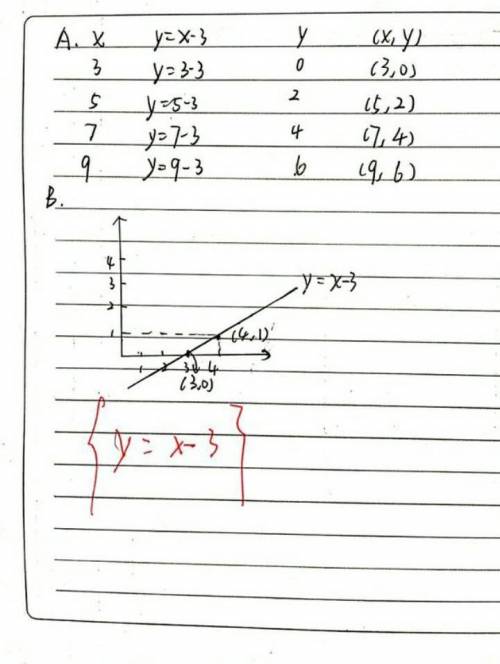 A. x y=x-3 y (x,y)
3 y=3-3 0 (3,0)
5 y=5-3 2 (5,2)
7 y=7-3 4 (7,4)
9 y=9-3 6 (9,6)
B.
4
3
2
1
y=x-3
(4,1)
1 2 3 4
(3,0)
{y = x-3}